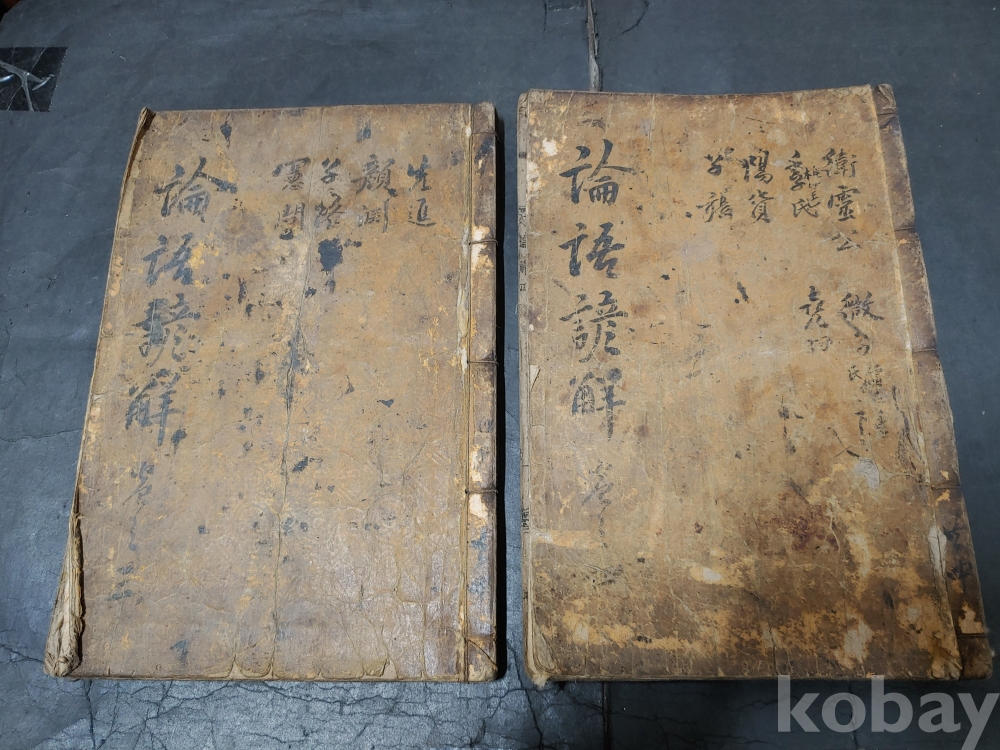 先進
顔淵
子路
憲問
論語諺解
卷之三
衛靈公
季氏
陽貨
子張
微子
堯曰
論語諺解
卷之
kobay